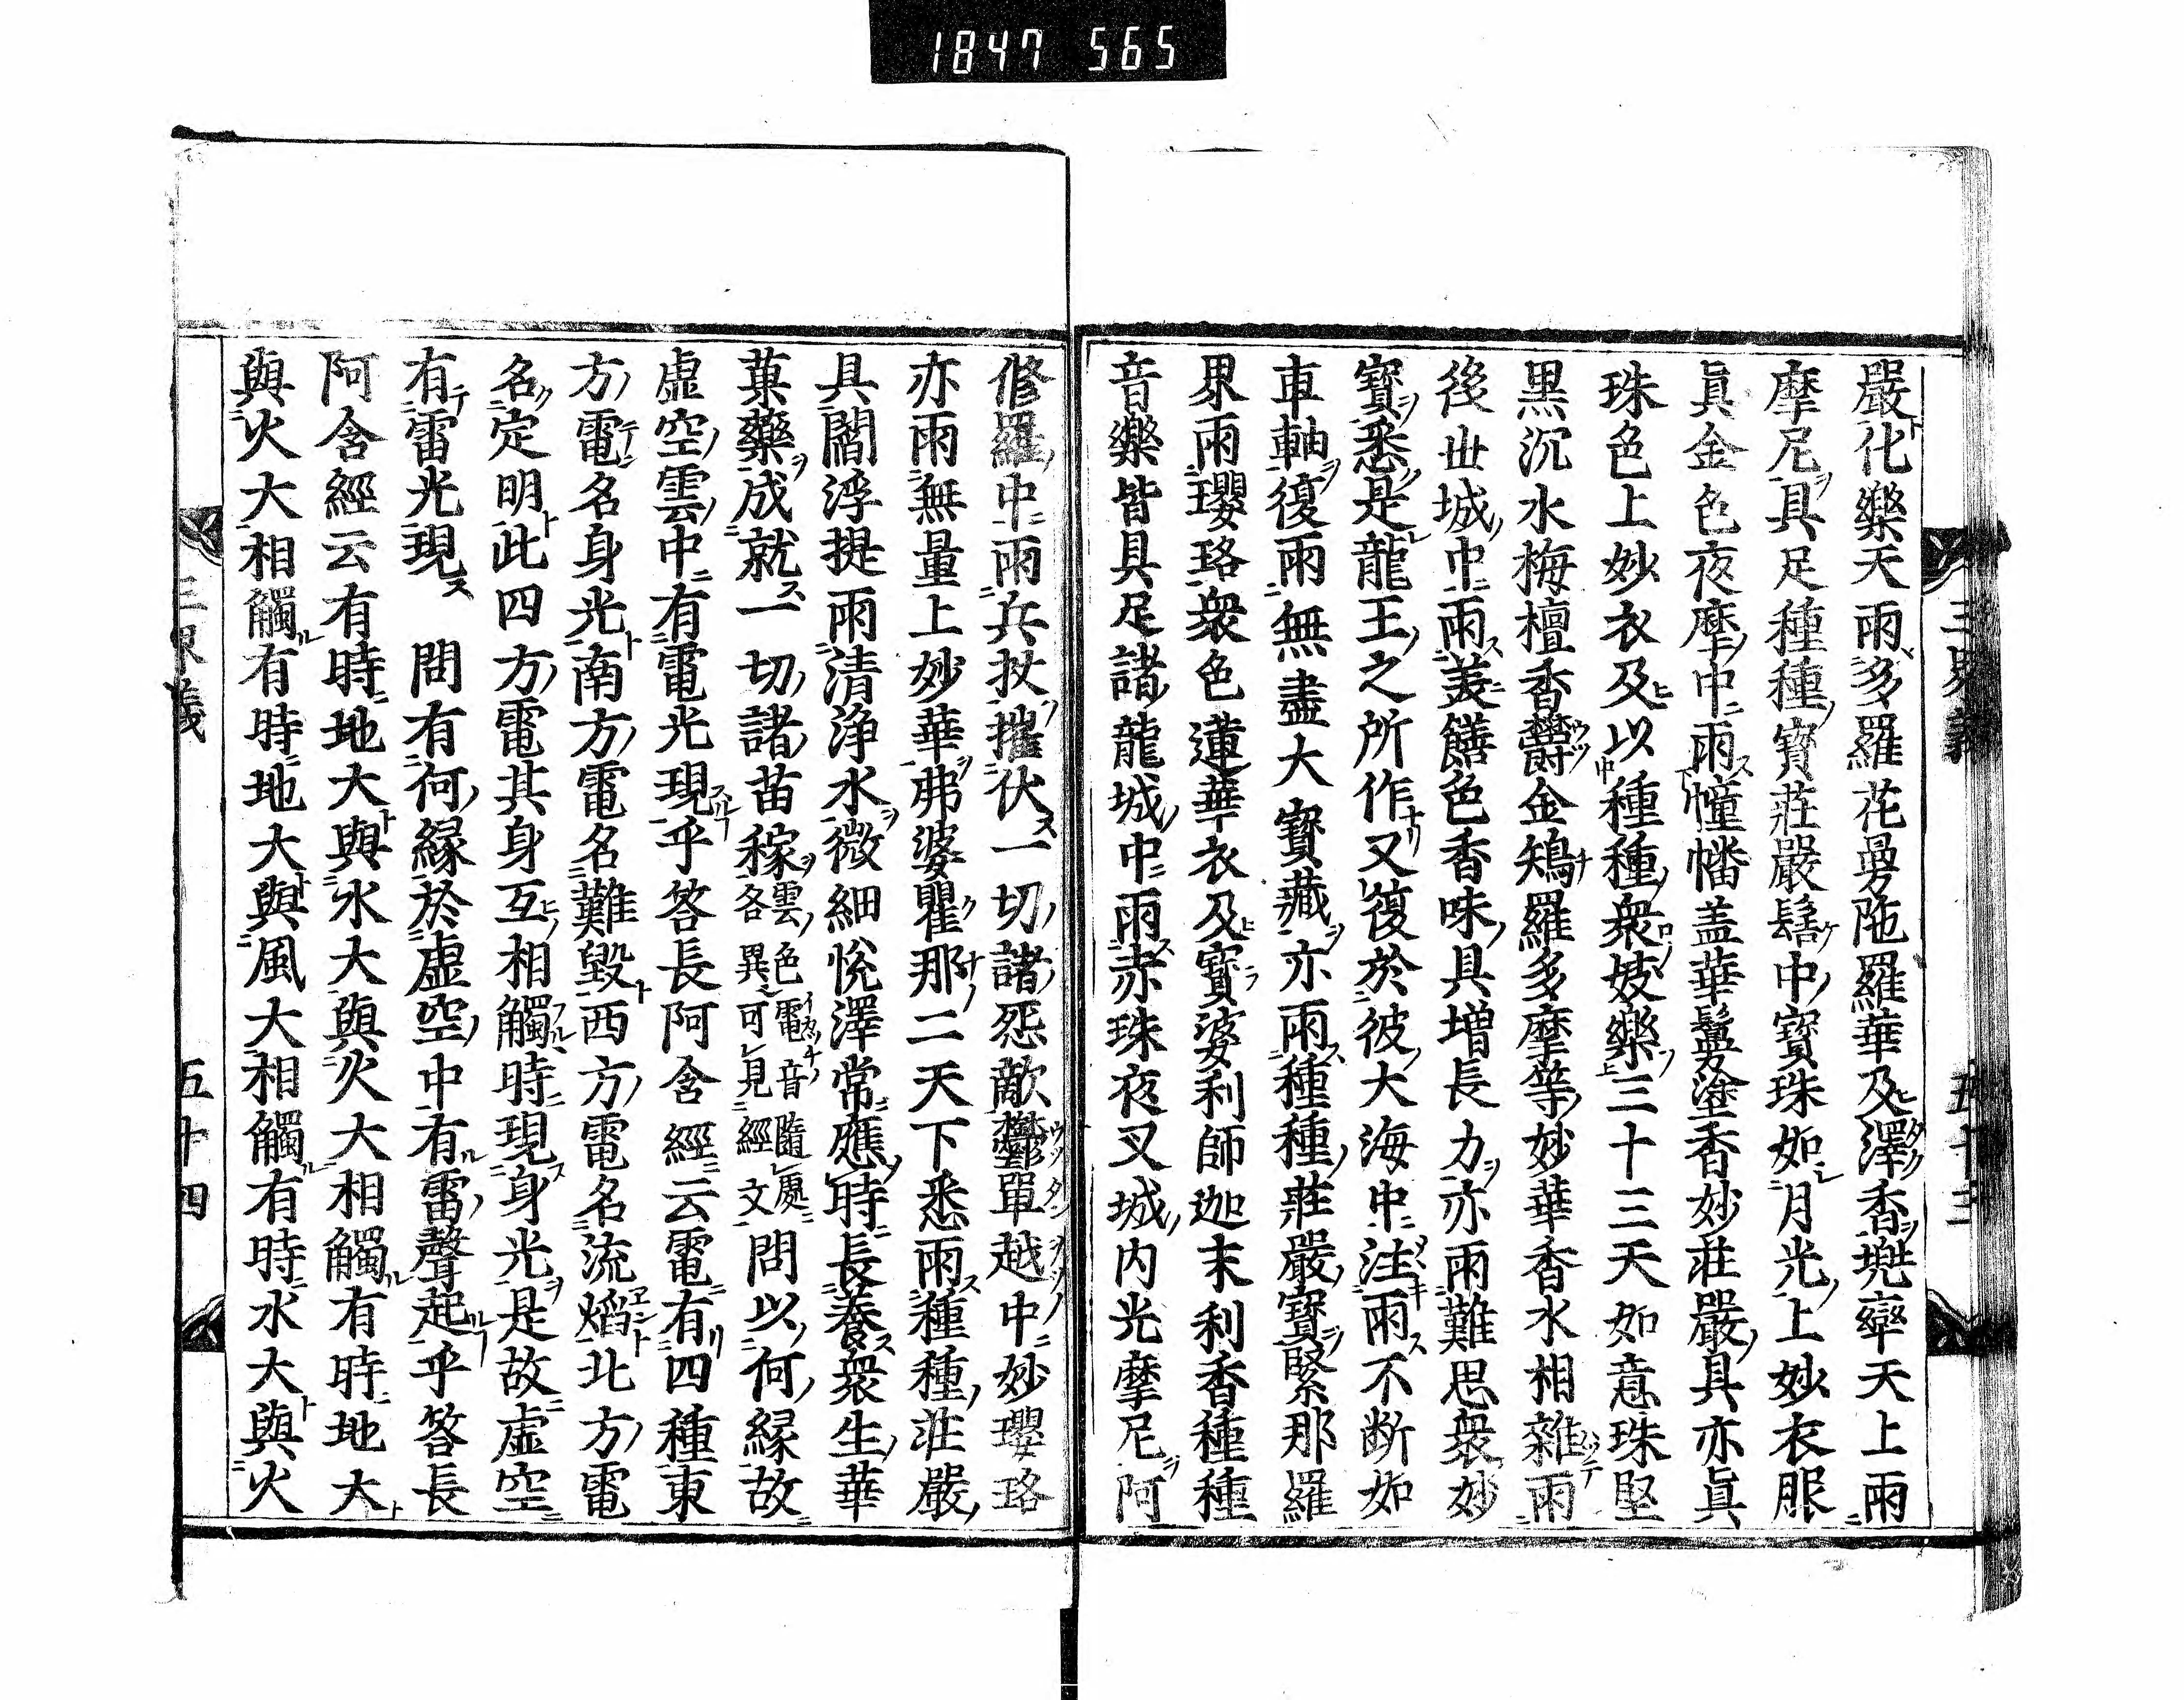 1847 565
嚴化樂天雨多羅花曼陁羅華及澤香兠率天上雨
摩尼具足種種寶莊嚴髻中寶珠如月光上妙衣服
眞金色夜摩中雨幢幡盖華鬘塗香妙莊嚴具亦眞
珠色上妙衣及以種種衆妓樂三十三天如意珠堅
黒沉水栴檀香欝金鴙羅多摩等妙華香水相雜雨
後世城中雨羙饍色香味具増長力亦雨難思衆妙
寶悉是龍王之所作又復於彼大海中注雨不断如
車軸復雨無盡大寶藏亦雨種種莊嚴寶緊那羅
界雨瓔珞衆色蓮華衣及寶婆利師迦末利香種種
音樂皆具足諸龍城中雨赤珠夜叉城内光摩尼阿
脩羅中雨兵杖摧伏一切諸怨敵欝單越中妙瓔珞
亦雨無量上妙華弗婆瞿那二天下悉雨種種莊嚴
具閻浮提雨清浄水微細悅澤常應時長養衆生華
菓藥成就一切諸苗稼雲色電音隨處各異可見經文問以何縁故
虚空雲中有電光現乎答長阿含經云電有四種東
方電名身光南方電名難毀西方電名流熖北方電
名定明此四方電其身互相觸時現身光是故虚空
有雷光現　問有何縁於虚空中有雷聲起乎答長
阿含經云有時地大與水大與火大相觸有時地大
與火大相觸有時地大與風大相觸有時水大與火
三界義　五十四